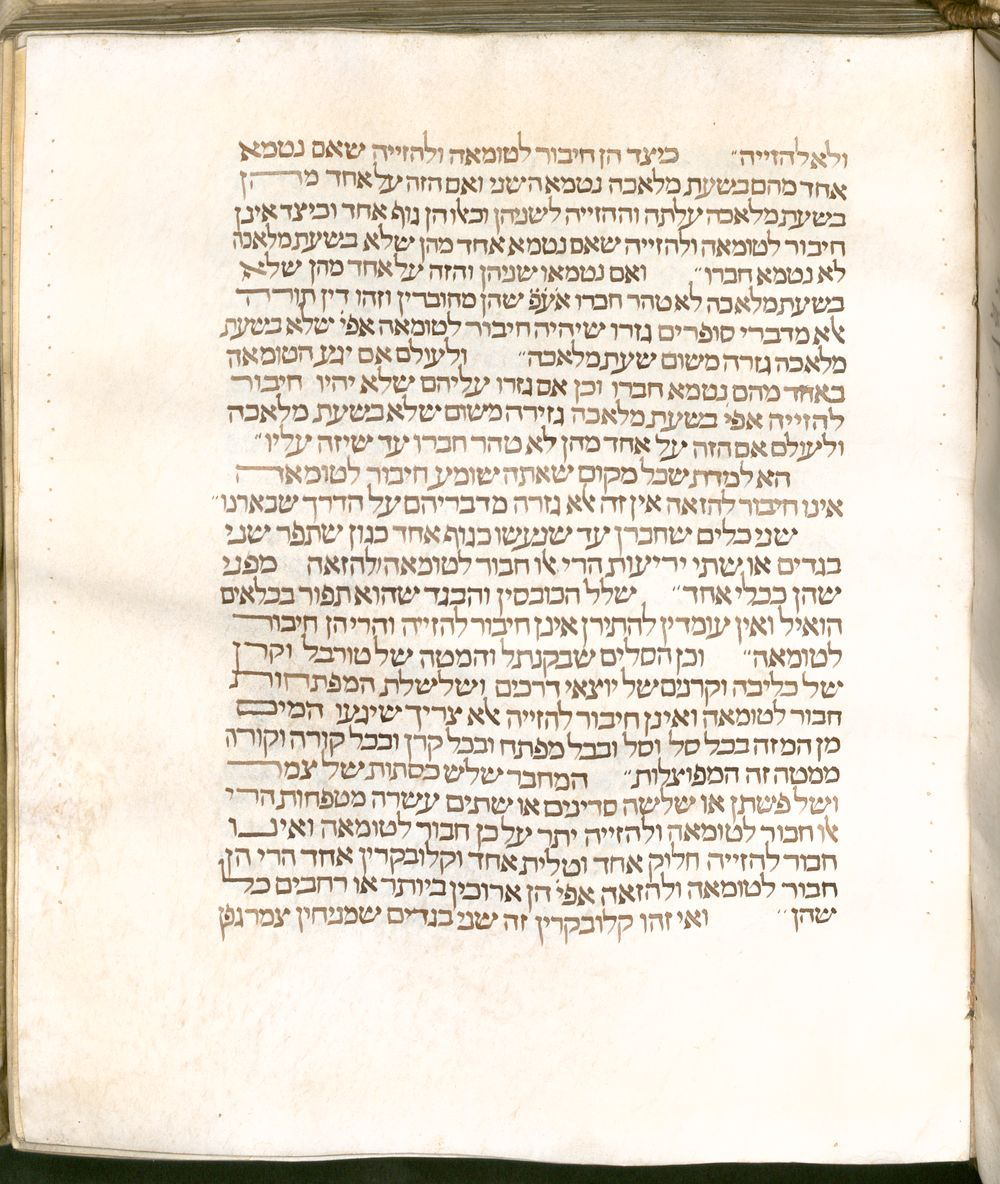 ולא להזייה״ כיצד הן חיבור לטומאה ולהזייה שאם נטמא
אחד מהם בשעת מלאכה נטמא השני ואם הזה על אחד מהן
בשעת מלאכה עלתה וההזייה לשניהן וכאלו הן גוף אחד וכיצד אינן
חיבור לטומאה ולהזייה שאם נטמא אחד מהן שלא בשעת מלאכה
לא נטמא חברו״ ואם נטמאו שניהן והזה על אחד מהן שלא
בשעת מלאכה לא טהר חברו אע״פ שהן מחוברין וזהו דין תורה
אלא מדברי סופרים גזרו שיהיה חיבור לטומאה אפי׳ שלא בשעת
מלאכה גזרה משום שעת מלאכה״ ולעולם אם יגע הטומאה
באחד מהם נטמא חברו וכן אם גזרו עליהם שלא יהיו חיבור
להזייה אפי׳ בשעת מלאכה גזירה משום שלא בשעת מלאכה
ולעולם אם הזה על אחד מהן לא טהר חברו עד שיזה עליו״
הא למדת שכל מקום שאתה שומע חיבור לטומאה
אינו חיבור להזאה אין זה אלא גזרה מדבריהם על הדרך שבארנו״
שני כלים שחברן עד שנעשו כגוף אחד כגון שתפר שני
בגדים או שתי יריעות הרי אלו חבור לטומאה ולהזאה מפני
שהן ככלי אחד״ שלל הכובסין והבגד שהוא תפור בכלאים
הואיל ואין עומדין להתירן אינן חיבור להזייה והרי הן חיבור
לטומאה״ וכן הסלים שבקנתל והמטה של טורבל וקרן
של כליבה וקרנים של יוצאי דרכים ושלשלת המפתחות
חבור לטומאה ואינן חיבור להזייה אלא צריך שיגעו המים
מן המזה בכל סל וסל ובכל מפתח ובכל קרן ובכל קורה וקורה
ממטה זה המפוצלות״ המחבר שלש כסתות של צמר
ושל פשתן או שלשה סדינים או שתים עשרה מטפחות הרי
אלו חבור לטומאה ולהזייה יתר על כן חבור לטומאה ואינו
חבור להזייה חלוק אחד וטלית אחד וקלובקרין אחד הרי הן
חבור לטומאה ולהזאה אפי׳ הן ארוכין ביותר או רחבים כל
שהן״ ואי זהו קלובקרין זה שני בגדים שמניחין צמר גפן